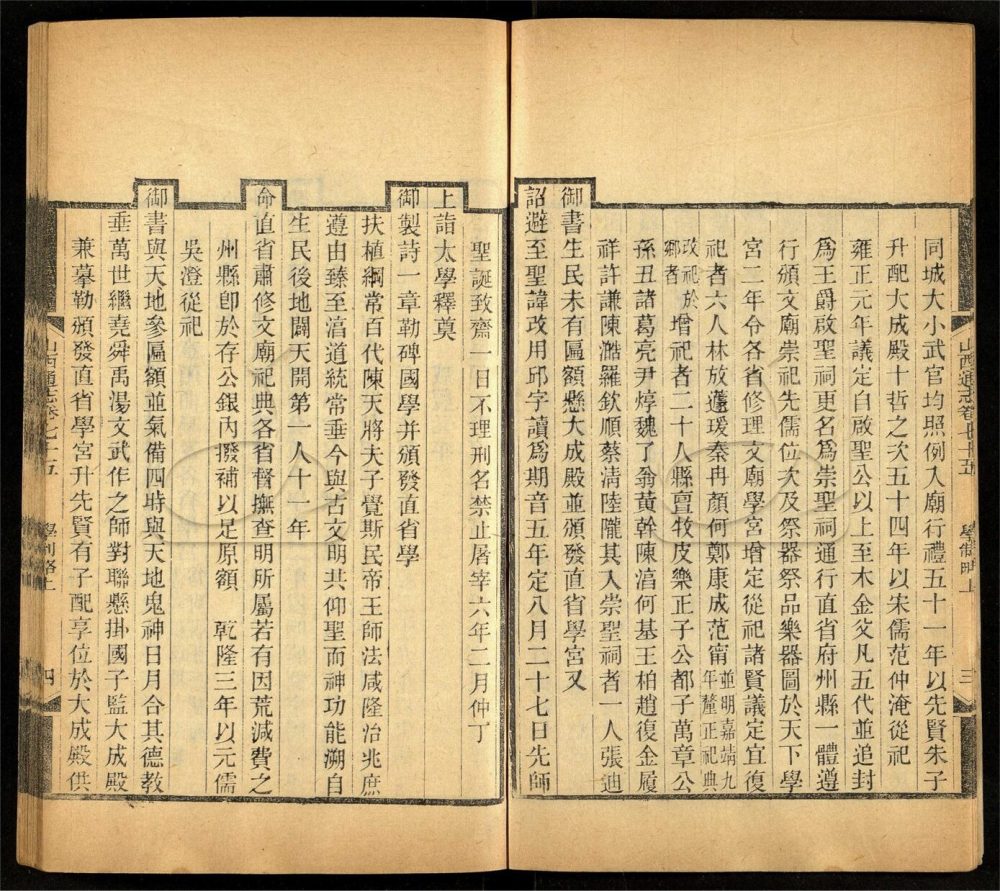 同城大小武官均照例入廟行禮五十一年以先賢朱子
升配大成殿十哲之次五十四年以宋儒范仲淹從祀
雍正元年議定自啟聖公以上至木金父凡五代並追封
爲王爵啟聖祠更名爲崇聖祠通行直省府州縣一體遵
行頒文廟崇祀先儒位次及祭器祭品樂器圖於天下學
宮二年令各省修理文廟學宮增定從祀諸賢議定宜復
祀者六人林放蘧瑗秦冉顏何鄭康成范甯並明嘉靖九年釐正祀典
改祀於鄉者增祀者二十人縣亶牧皮樂正子公都子萬章公
孫丑諸葛亮尹焞魏了翁黃幹陳淳何基王柏趙復金履
祥許謙陳澔羅欽順蔡清陸隴其入崇聖祠者一人張迪
御書生民未有匾額懸大成殿並頒發直省學宮又
詔避至聖諱改用邱字讀爲期音五年定八月二十七日先師
聖誕致齋一日不理刑名禁止屠宰六年二月仲丁
上詣太學釋奠
御製詩一章勒碑國學并頒發直省學
扶植綱常百代陳天將夫子覺斯民帝王師法咸隆治兆庶
遵由臻至淳道統常垂今與古文明共仰聖而神功能溯自
生民後地闢天開第一人十一年
命直省肅修文廟祀典各省督撫查明所屬若有因荒減費之
州縣卽於存公銀內撥補以足原額 乾隆三年以元儒
吳澄從祀
御書與天地參匾額並氣備四時與天地鬼神日月合其德教
垂萬世繼堯舜禹湯文武作之師對聯懸掛國子監大成殿
兼摹勒頒發直省學宮升先賢有子配享位於大成殿供
山西通志卷七十五
學制略上
三
山西通志卷七十五
學制略上
四